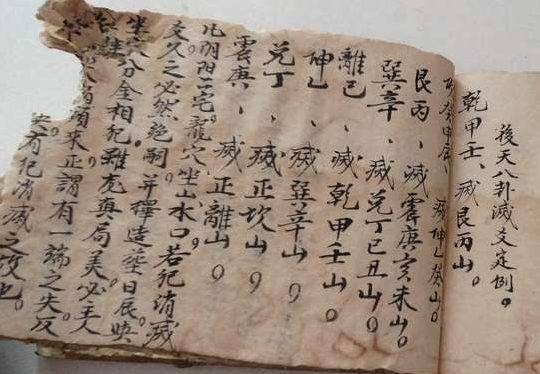 後天八卦滅爻定例。
乾甲壬、滅艮丙山。
癸甲 滅坤乙癸山。
艮丙、滅震庚亥未山。
巽辛、滅兑丁巳丑山。
離己、滅乾甲壬山。
坤乚、滅巽辛山。
兑丁、滅正坎山。
震庚、滅正離山。
凡阴阳二宅龍穴坐山水口若犯消滅
爻久之必然絶嗣。并擇造塋日辰與
坐穴分金相犯。雖龙真局美必主人
禍須来正謂有一端之失反
有犯消滅之故也。